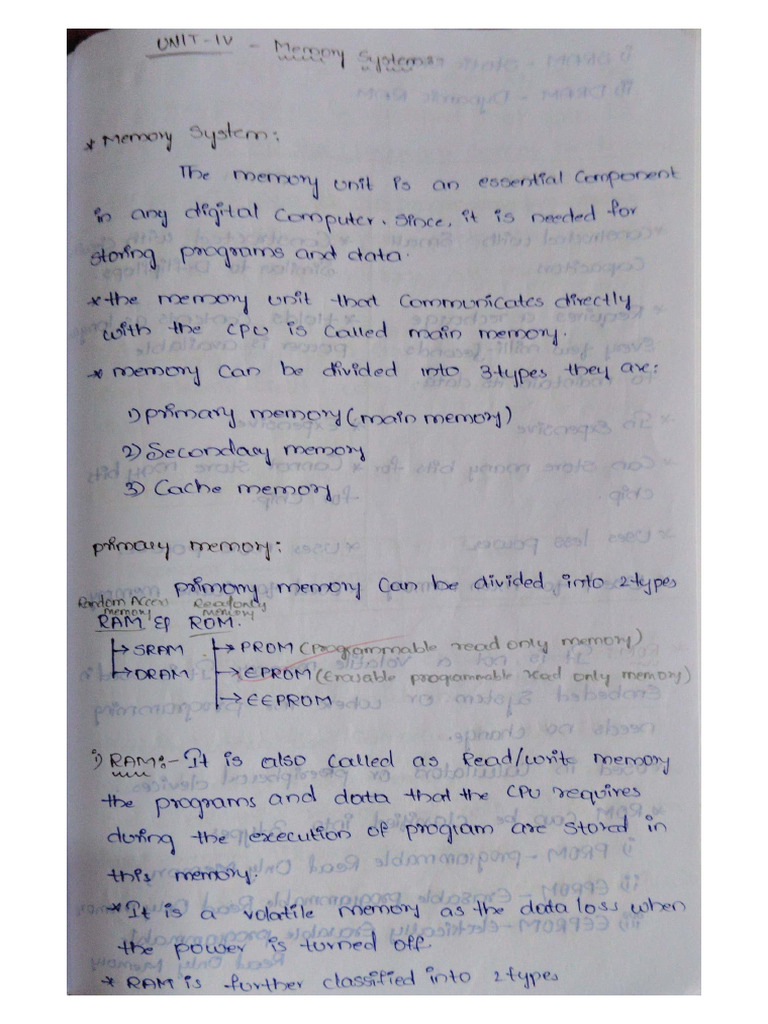 UNIT-IV - Memory Systems
* Memory System:
The memory unit is an essential Component
in any digital Computer. Since, it is needed for
storing programs and data.
* the memory unit that Communicates directly
with the CPU is called main memory.
* memory can be divided into 3 types they are:
1) primary memory (main memory)
2) Secondary memory
3) Cache memory
primary memory:
primary memory can be divided into 2 types
Random Access Memory Read only memory
RAM & ROM.
→ SRAM → PROM (Programmable read only memory)
→ DRAM → EPROM (Erasable programmable read only memory)
→ EEPROM
i) RAM:- It is also called as Read/write memory
the programs and data that the CPU requires
during the execution of program are stored in
this memory.
* It is a volatile memory as the data loss when
the power is turned off.
* RAM is further classified into 2 types